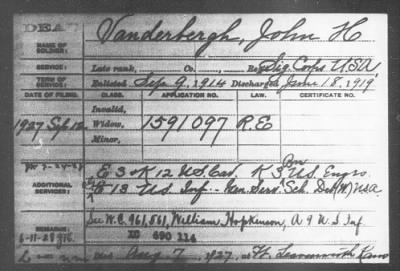 DEA
Vanderbergh, John H
NAME OF SOLDIER:
SERVICE: Late rank, Co. Reg Sig. Corps USA
TERM OF SERVICE: Enlisted Sep. 9, 1914 Discharged June 18, 1919
DATE OF FILING. CLASS. APPLICATION NO. LAW. CERTIFICATE NO.
Invalid,
1927 Sep. 12 Widow, 1591097 R.E
Minor,
ADDITIONAL SERVICES:
E 3 & K 12 U.S. Cav. K 3 Bn U.S. Engrs.
E 13 U.S. Inf - Gen. Serv. Sch. Det USA
REMARKS:
See W.C. 961,561, William Hopkinson, A 9 U.S. Inf
XC 690 114
Died Aug 7, 1927, at Ft. Leavenworth Kans